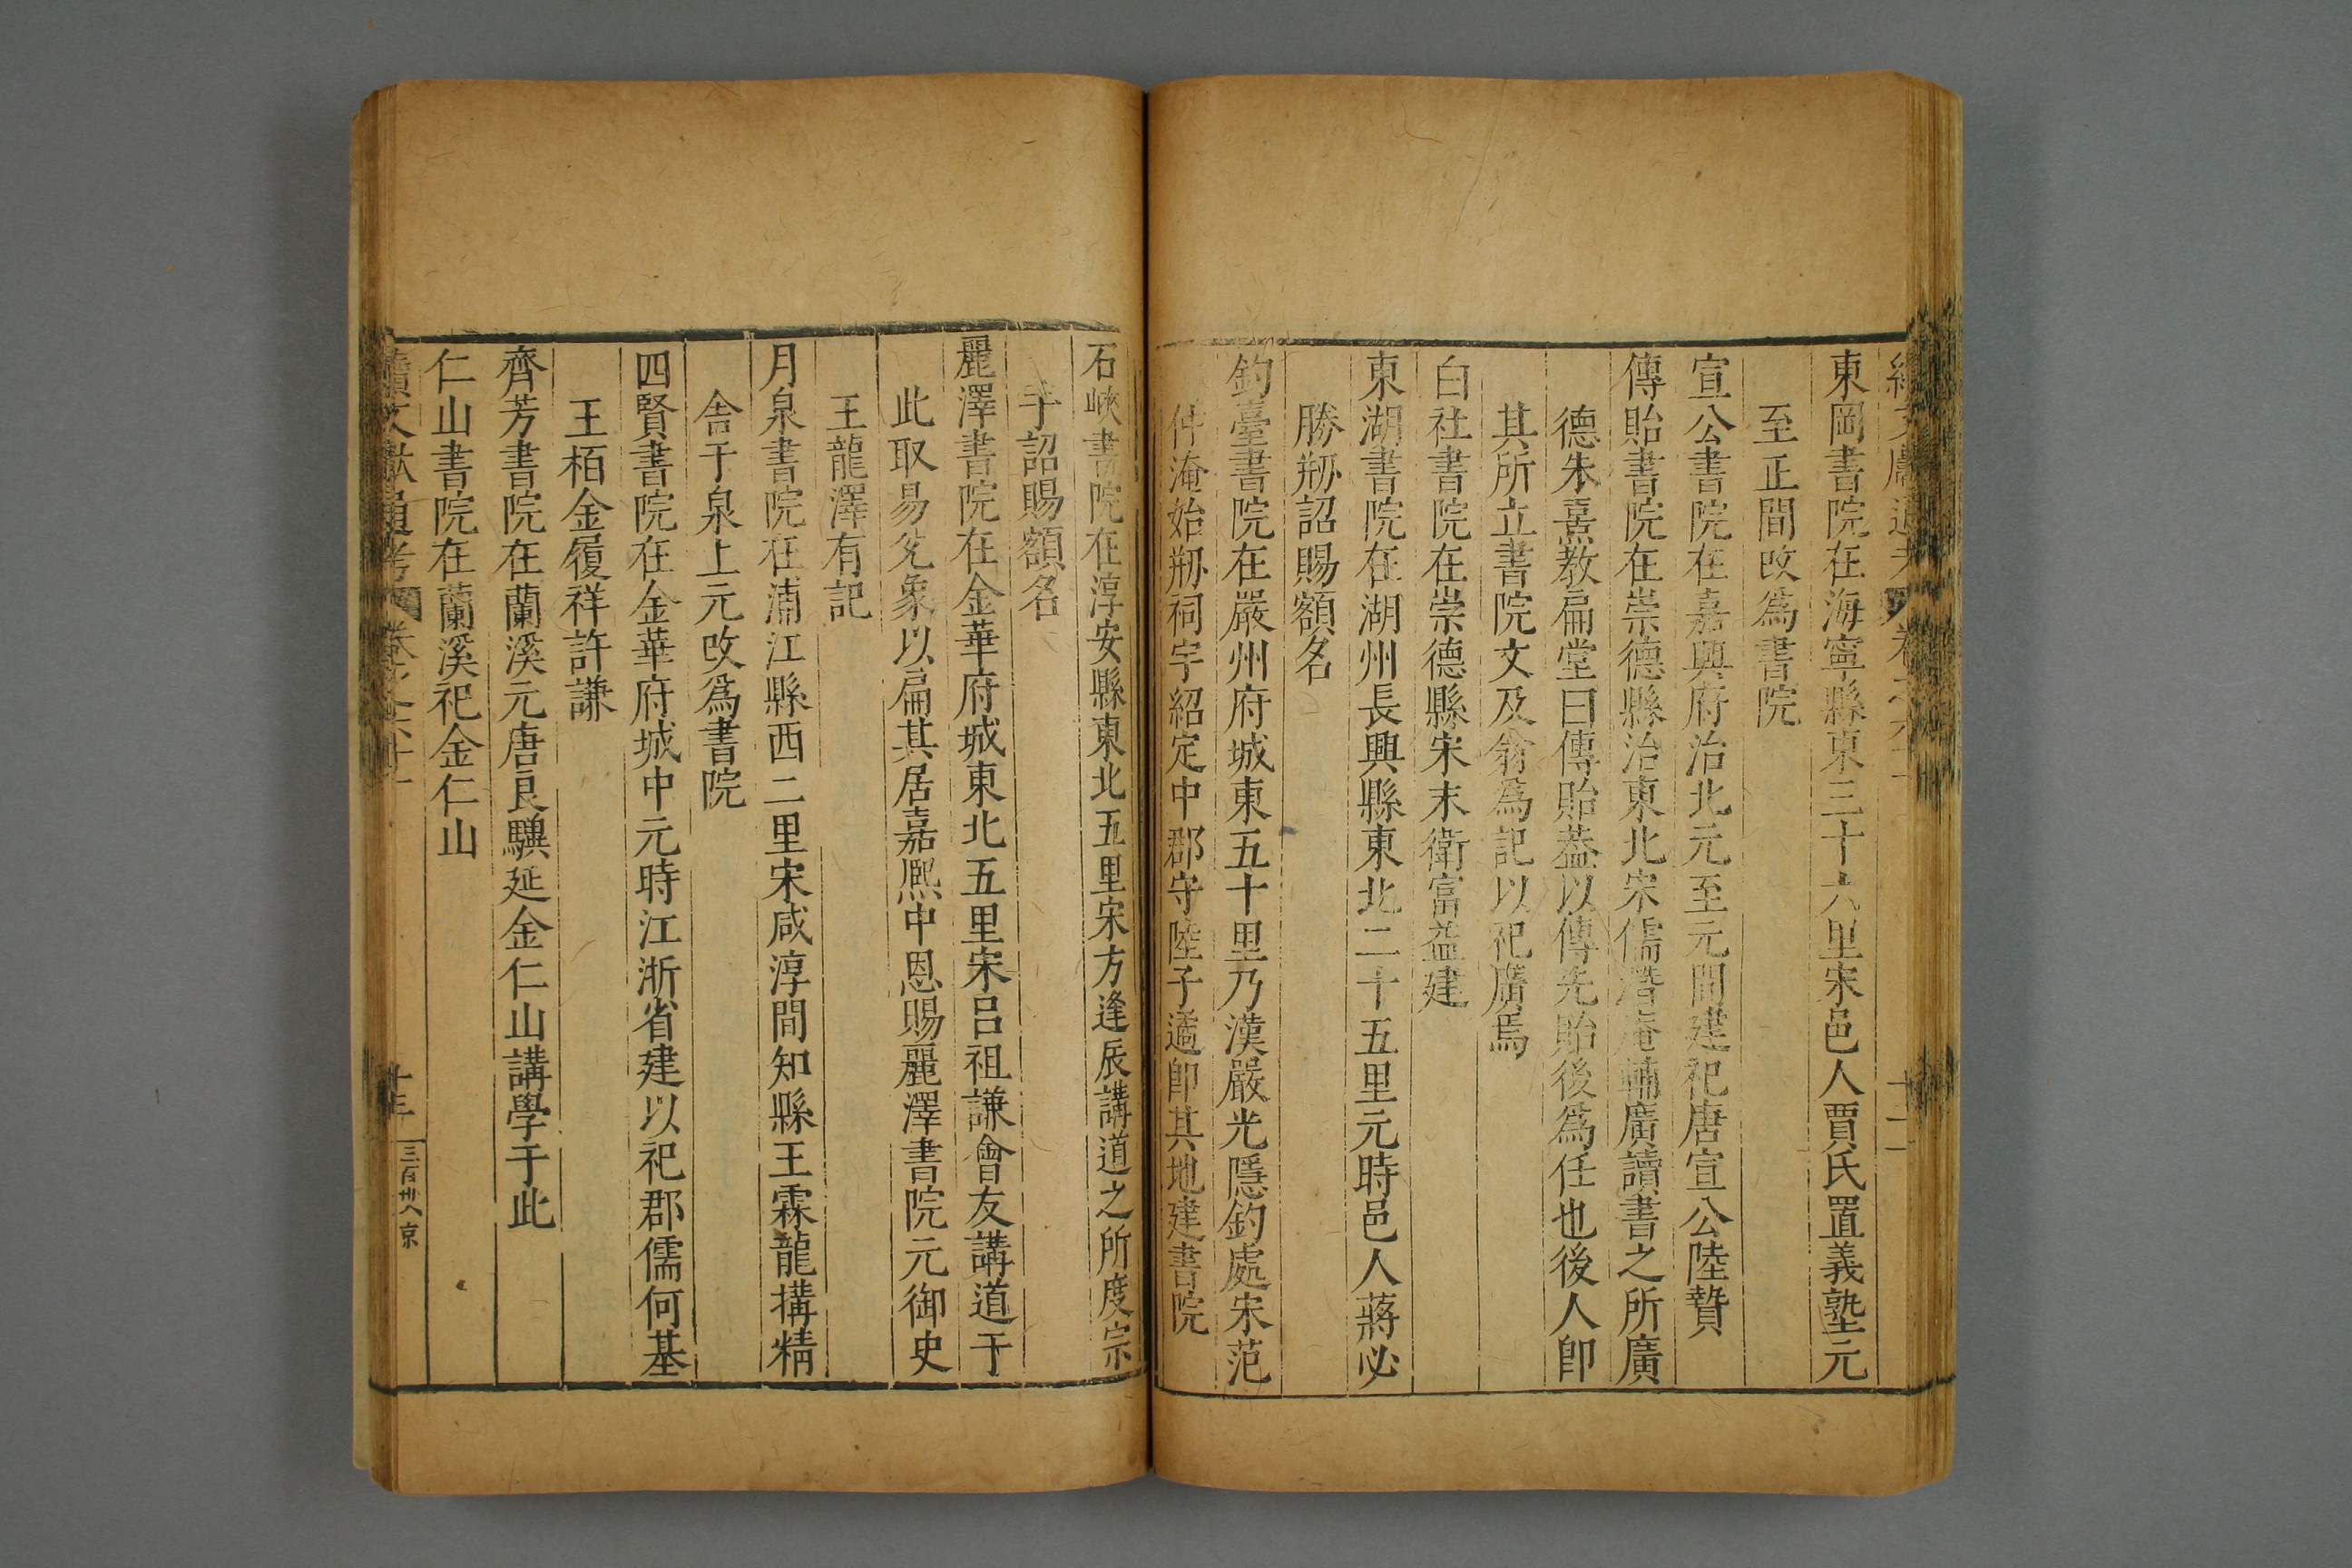 東岡書院在海寧縣東三十六里宋邑人賈氏置義塾元
至正間改爲書院
宣公書院在嘉興府治北元至元間建祀唐宣公陸贄
傳貽書院在崇德縣治東北宋儒潛庵輔廣讀書之所廣
德朱熹教扁堂曰傳貽葢以傳先貽後爲任也後人卽
其所立書院文及翁爲記以祀廣焉
白社書院在崇德縣宋末衛富益建
東湖書院在湖州長興縣東北二十五里元時邑人蔣必
勝剏詔賜額名
釣臺書院在嚴州府城東五十里乃漢嚴光隱釣處宋范
仲淹始剏祠宇紹定中郡守陸子遹卽其地建書院
石峽書院在淳安縣東北五里宋方逢辰講道之所度宗
手詔賜額名
麗澤書院在金華府城東北五里宋呂祖謙會友講道于
此取易兊象以扁其居嘉熈中恩賜麗澤書院元御史
王龍澤有記
月泉書院在浦江縣西二里宋咸淳間知縣王霖龍搆精
舍于泉上元改爲書院
四賢書院在金華府城中元時江浙省建以祀郡儒何基
王栢金履祥許謙
齊芳書院在蘭溪元唐良驥延金仁山講學于此
仁山書院在蘭溪祀金仁山
續文獻通考
三百卅八京